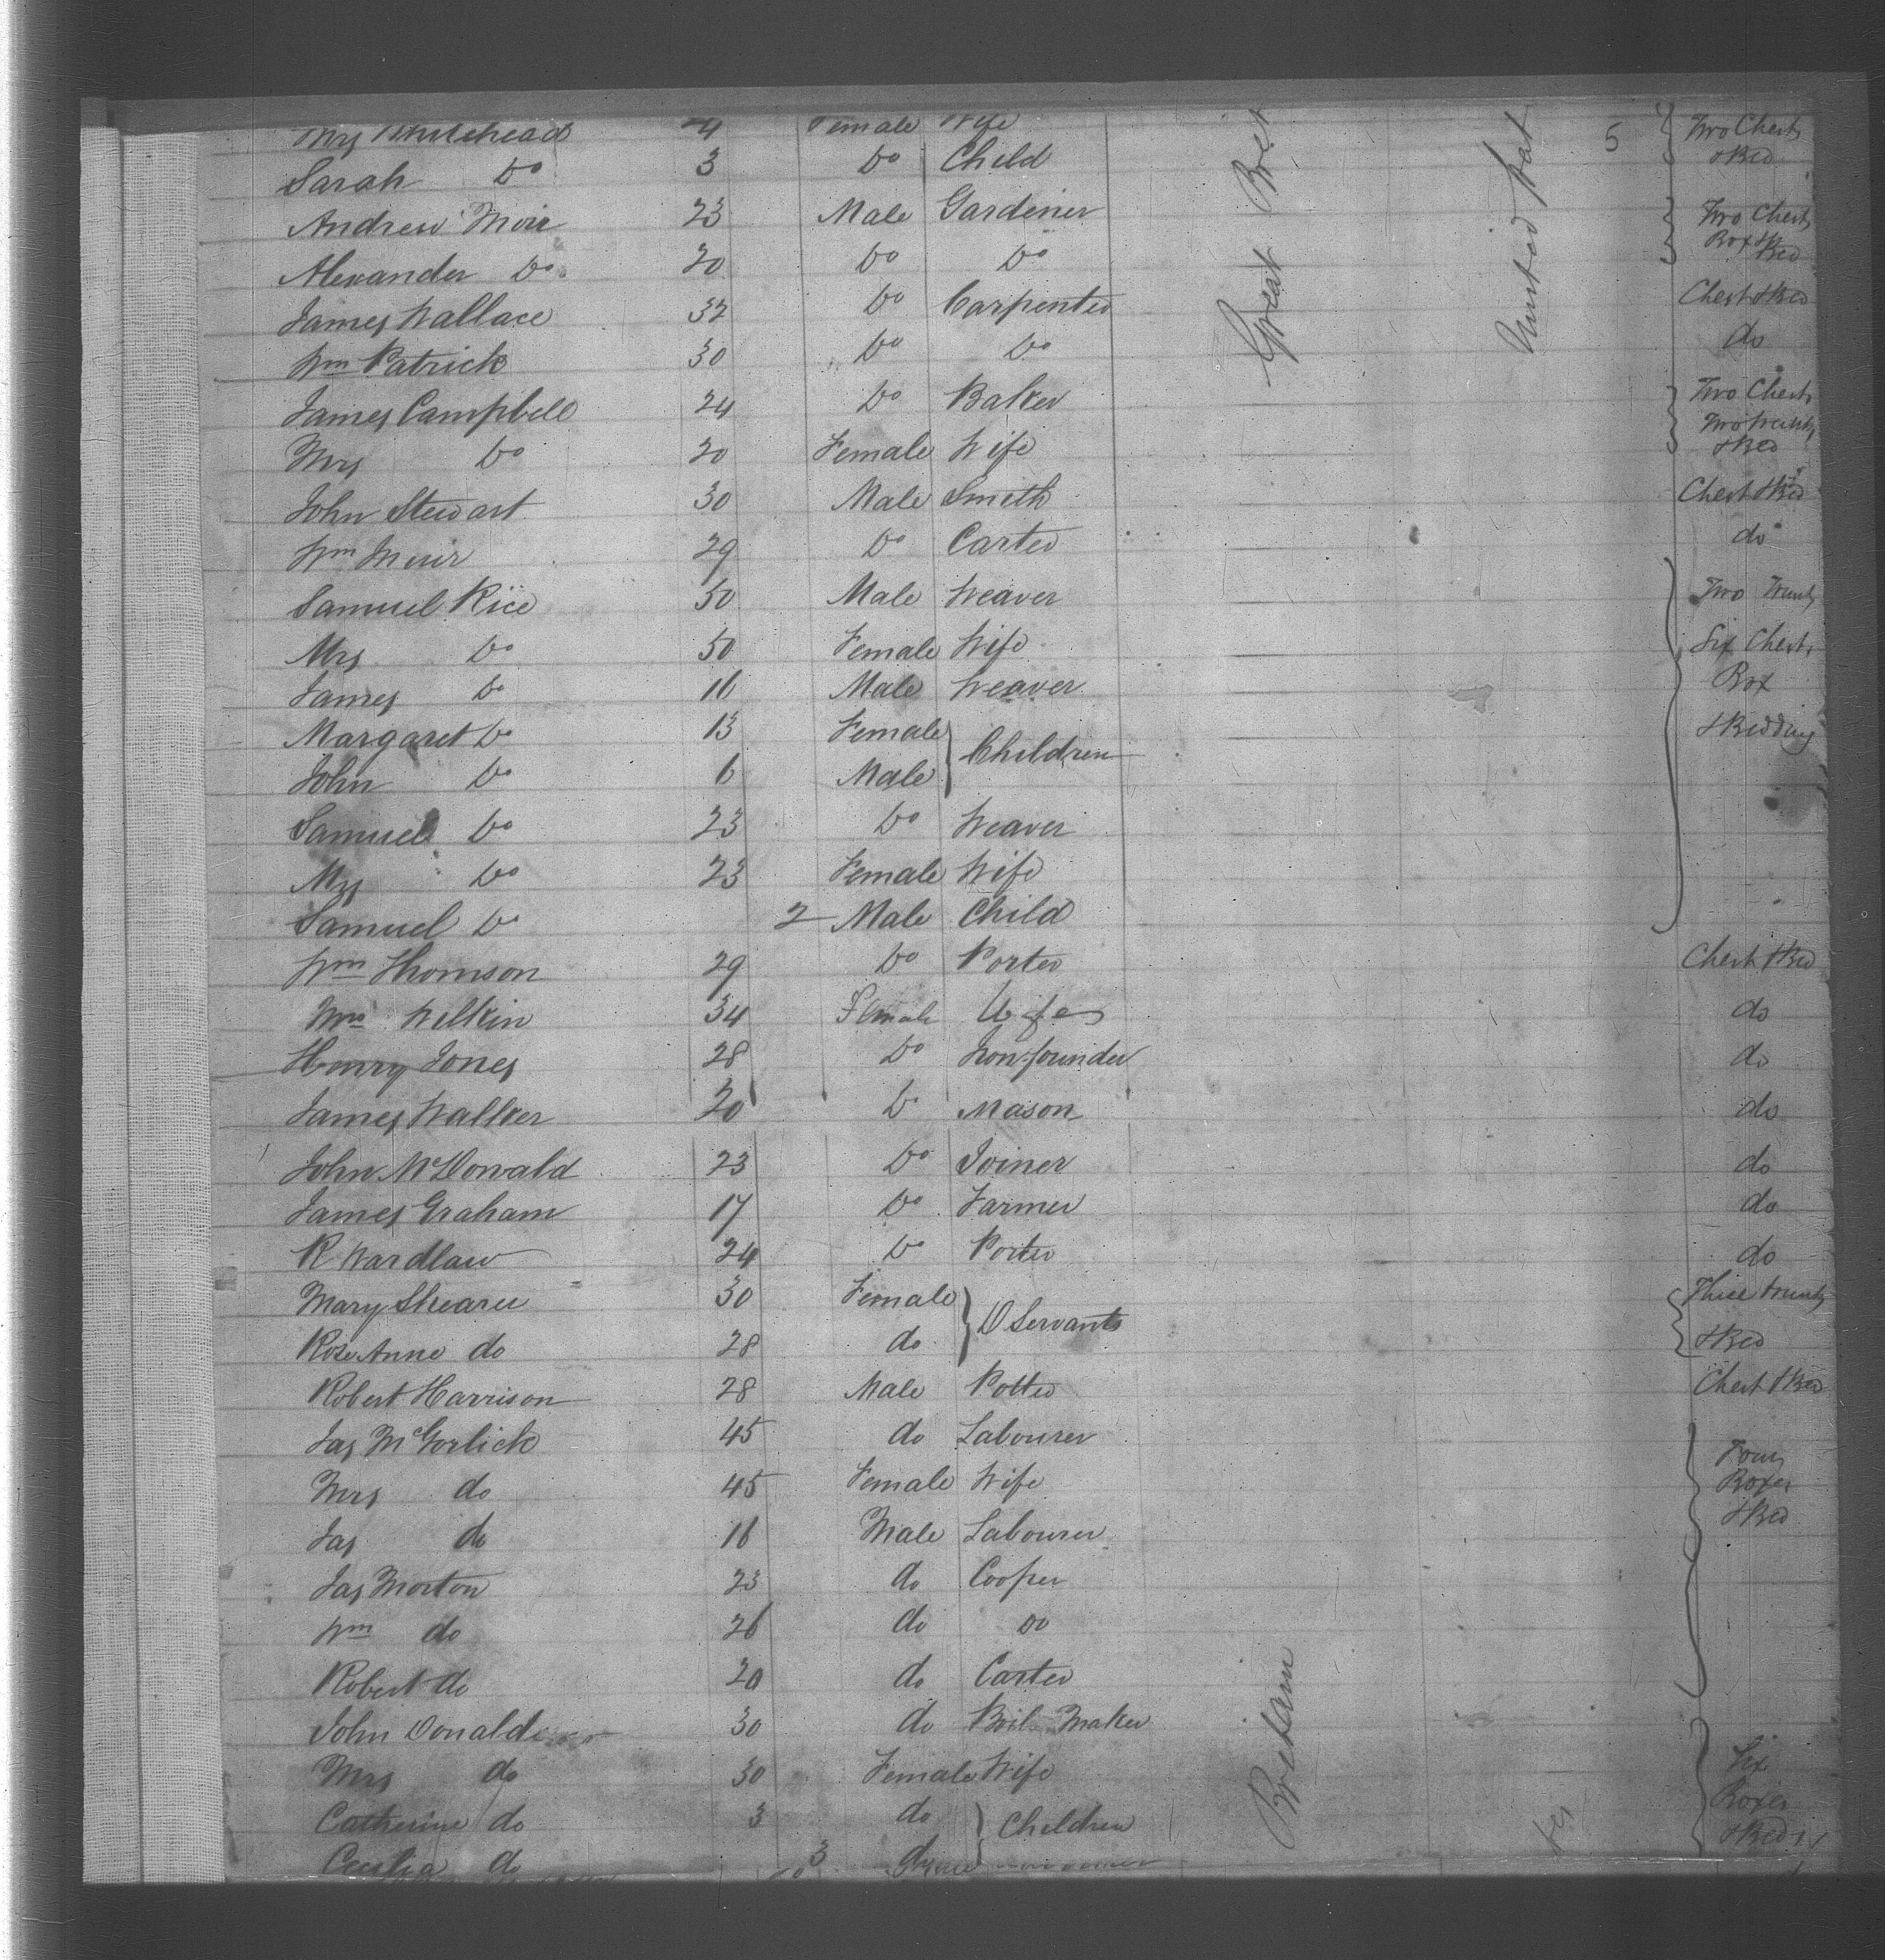 Mrs Whitehead 24 Female Wife 5 Two Chests
Sarah Do 3 Do Child & Bed
Andrew Moir 23 Male Gardener Two Chests
Alexander Do 20 Do Do Box & Bed
James Wallace 32 Do Carpenter Chest & Bed
Wm Patrick 30 Do Do do
James Campbell 24 Do Baker Two Chests
Two Trunks
Mrs Do 20 Female Wife & Bed
John Stewart 30 Male Smith Chest & Bed
Wm Muir 29 Do Carter do
Samuel Rice 50 Male Weaver Two Trunks
Mrs Do 50 Female Wife Six Chests
James Do 16 Male Weaver Box
Margaret Do 13 Female Children & Bedding
John Do 6 Male
Samuel Do 23 Do Weaver
Mrs Do 23 Female Wife
Samuel Do 2 Male Child
Wm Thomson 29 Do Porter Chest & Bed
Mrs Wilkin 34 Female Wife do
Henry Jones 28 Do Iron founder do
James Walker 20 Do Mason do
John McDonald 23 Do Joiner do
James Graham 17 Do Farmer do
R Wardlaw 24 Do Porter do
Mary Shearer 30 Female D Servants Three Trunks
Rose Anne do 28 do & Bed
Robert Harrison 28 Male Potter Chest & Bed
Jas McGorlick 45 do Labourer Four
Mrs do 45 Female Wife Boxes
Jas do 16 Male Labourer & Bed
Jas Morton 23 do Cooper
Wm do 26 do do
Robert do 20 do Carter
John Donald 30 do Boil Maker
Mrs do 30 Female Wife Six
Catherine do 3 do Children Boxes
Cecilia do 3 & Beds
Great Brit
United Stat
Britain